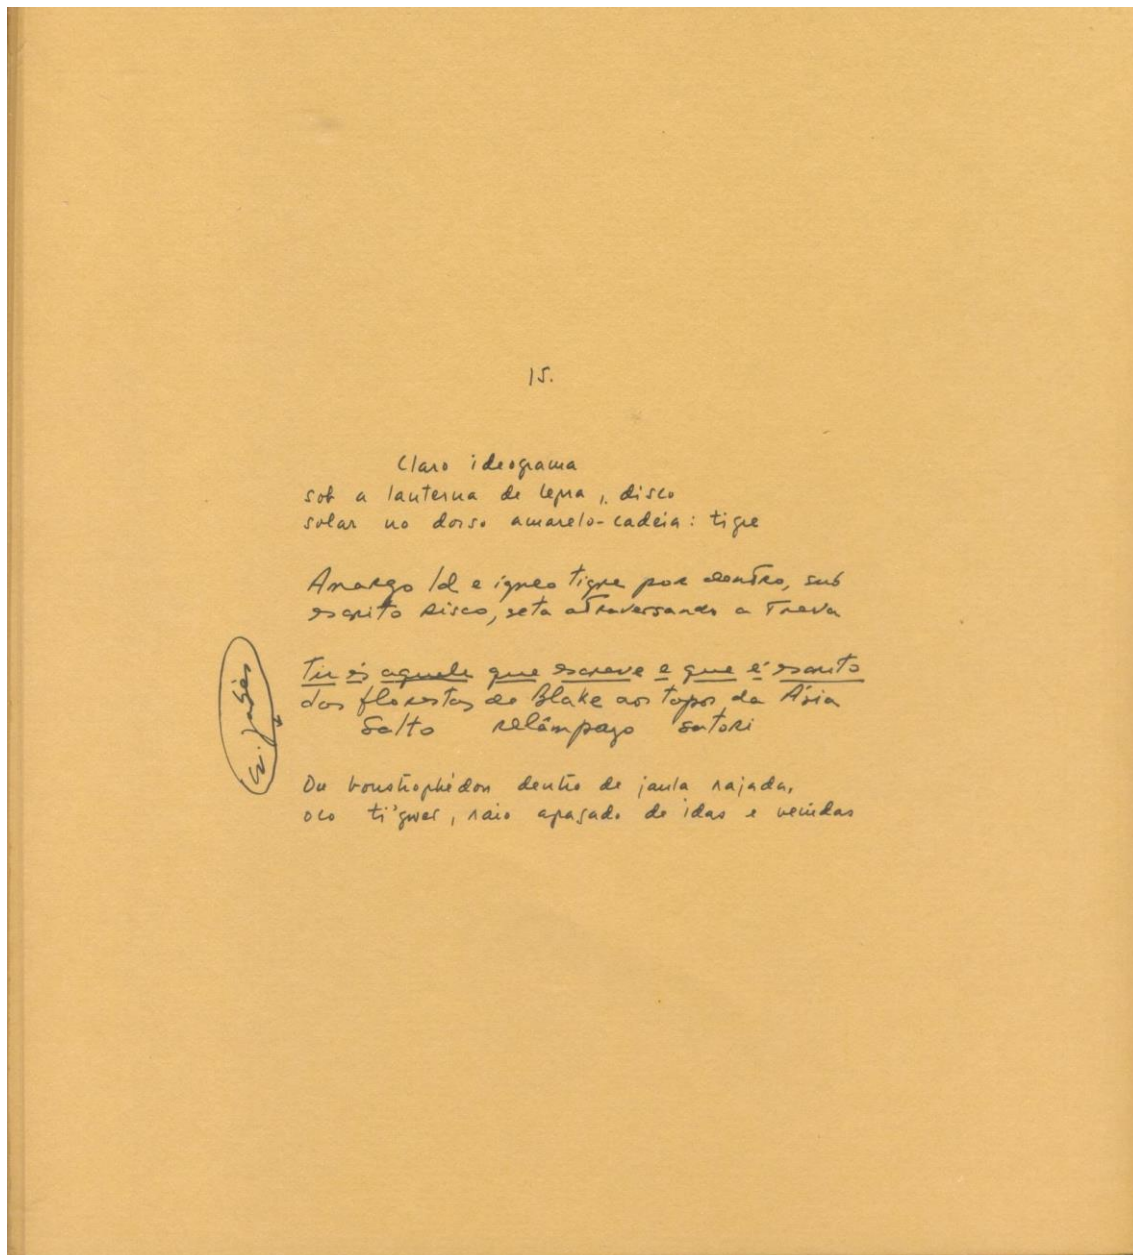 15.
Claro ideograma
sob a lanterna de lepra, disco
solar no dorso amarelo-cadeia: tigre
Amargo Id e ígneo tigre por dentro, sub
escrito risco, seta atravessando a Treva
Tu és aquele que escreve e que é escrito
das florestas de Blake aos topos da Ásia
Salto relâmpago satori
Ou boustrophédon dentro de jaula rajada,
oco ti'gwer, raio apagado de idas e vindas
E. Jabès